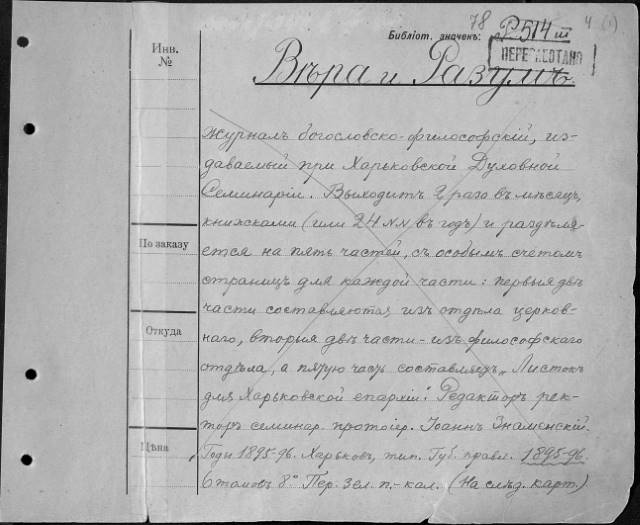 78
4 (1)
Библіот. значекъ: P 514 III
ПЕРЕ
Инв.
№
Вѣра и Разумъ.
Журналъ богословско-философскій, из-
даваемый при Харьковской Духовной
Семинаріи. Выходитъ 2 раза въ мѣсяцъ,
книжками (или 24 NN въ годъ) и раздѣля-
ется на пять частей, съ особымъ счетомъ
По заказу
страницъ для каждой части: первыя двѣ
части составляются изъ отдѣла церков-
Откуда
наго, вторыя двѣ части – изъ философскаго
отдѣла, а пятую часть составляетъ „Листокъ
для Харьковской епархіи". Редакторъ рек-
торъ семинар. протоіер. Іоаннъ Знаменскій.
Цѣна
Годы 1895-96. Харьковъ, тип. Губ. правл. 1895-96.
6 томовъ 8° Пер. зел. п.-кал. (На слѣд. карт.)